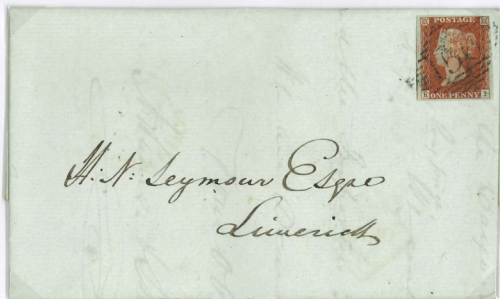 POSTAGE
ONE PENNY
H: N: Seymour Esqre
Limerick